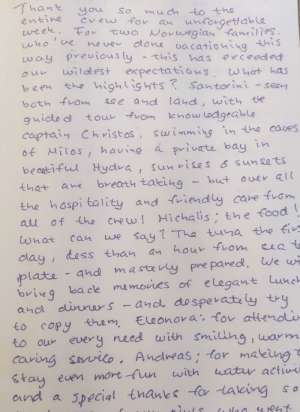 Thank you so much to the
entire crew for an unforgettable
week. For two Norwegian families,
who've never done vacationing this
way previously - this has exceeded
our wildest expectations. What has
been the highlights? Santorini - seen
both from sea and land, with the
guided tour from knowledgeable
captain Christos. Swimming in the caves
of Milos, having a private bay in
beatiful Hydra, sunrises & sunsets
that are breathtaking - but over all
the hospitality and friendly care from
all of the crew! Michalis; the food!
What can we say? The tuna the first
day, less than an hour from sea to
plate - and masterly prepared. We wi
bring back memories of elegant lunch
and dinners - and desperately try
to copy them. Eleonora: for attendin
to our every need with smiling, warm
caring service. Andreas; for making
stay even more fun with water activi
and a special thanks for taking so
who went